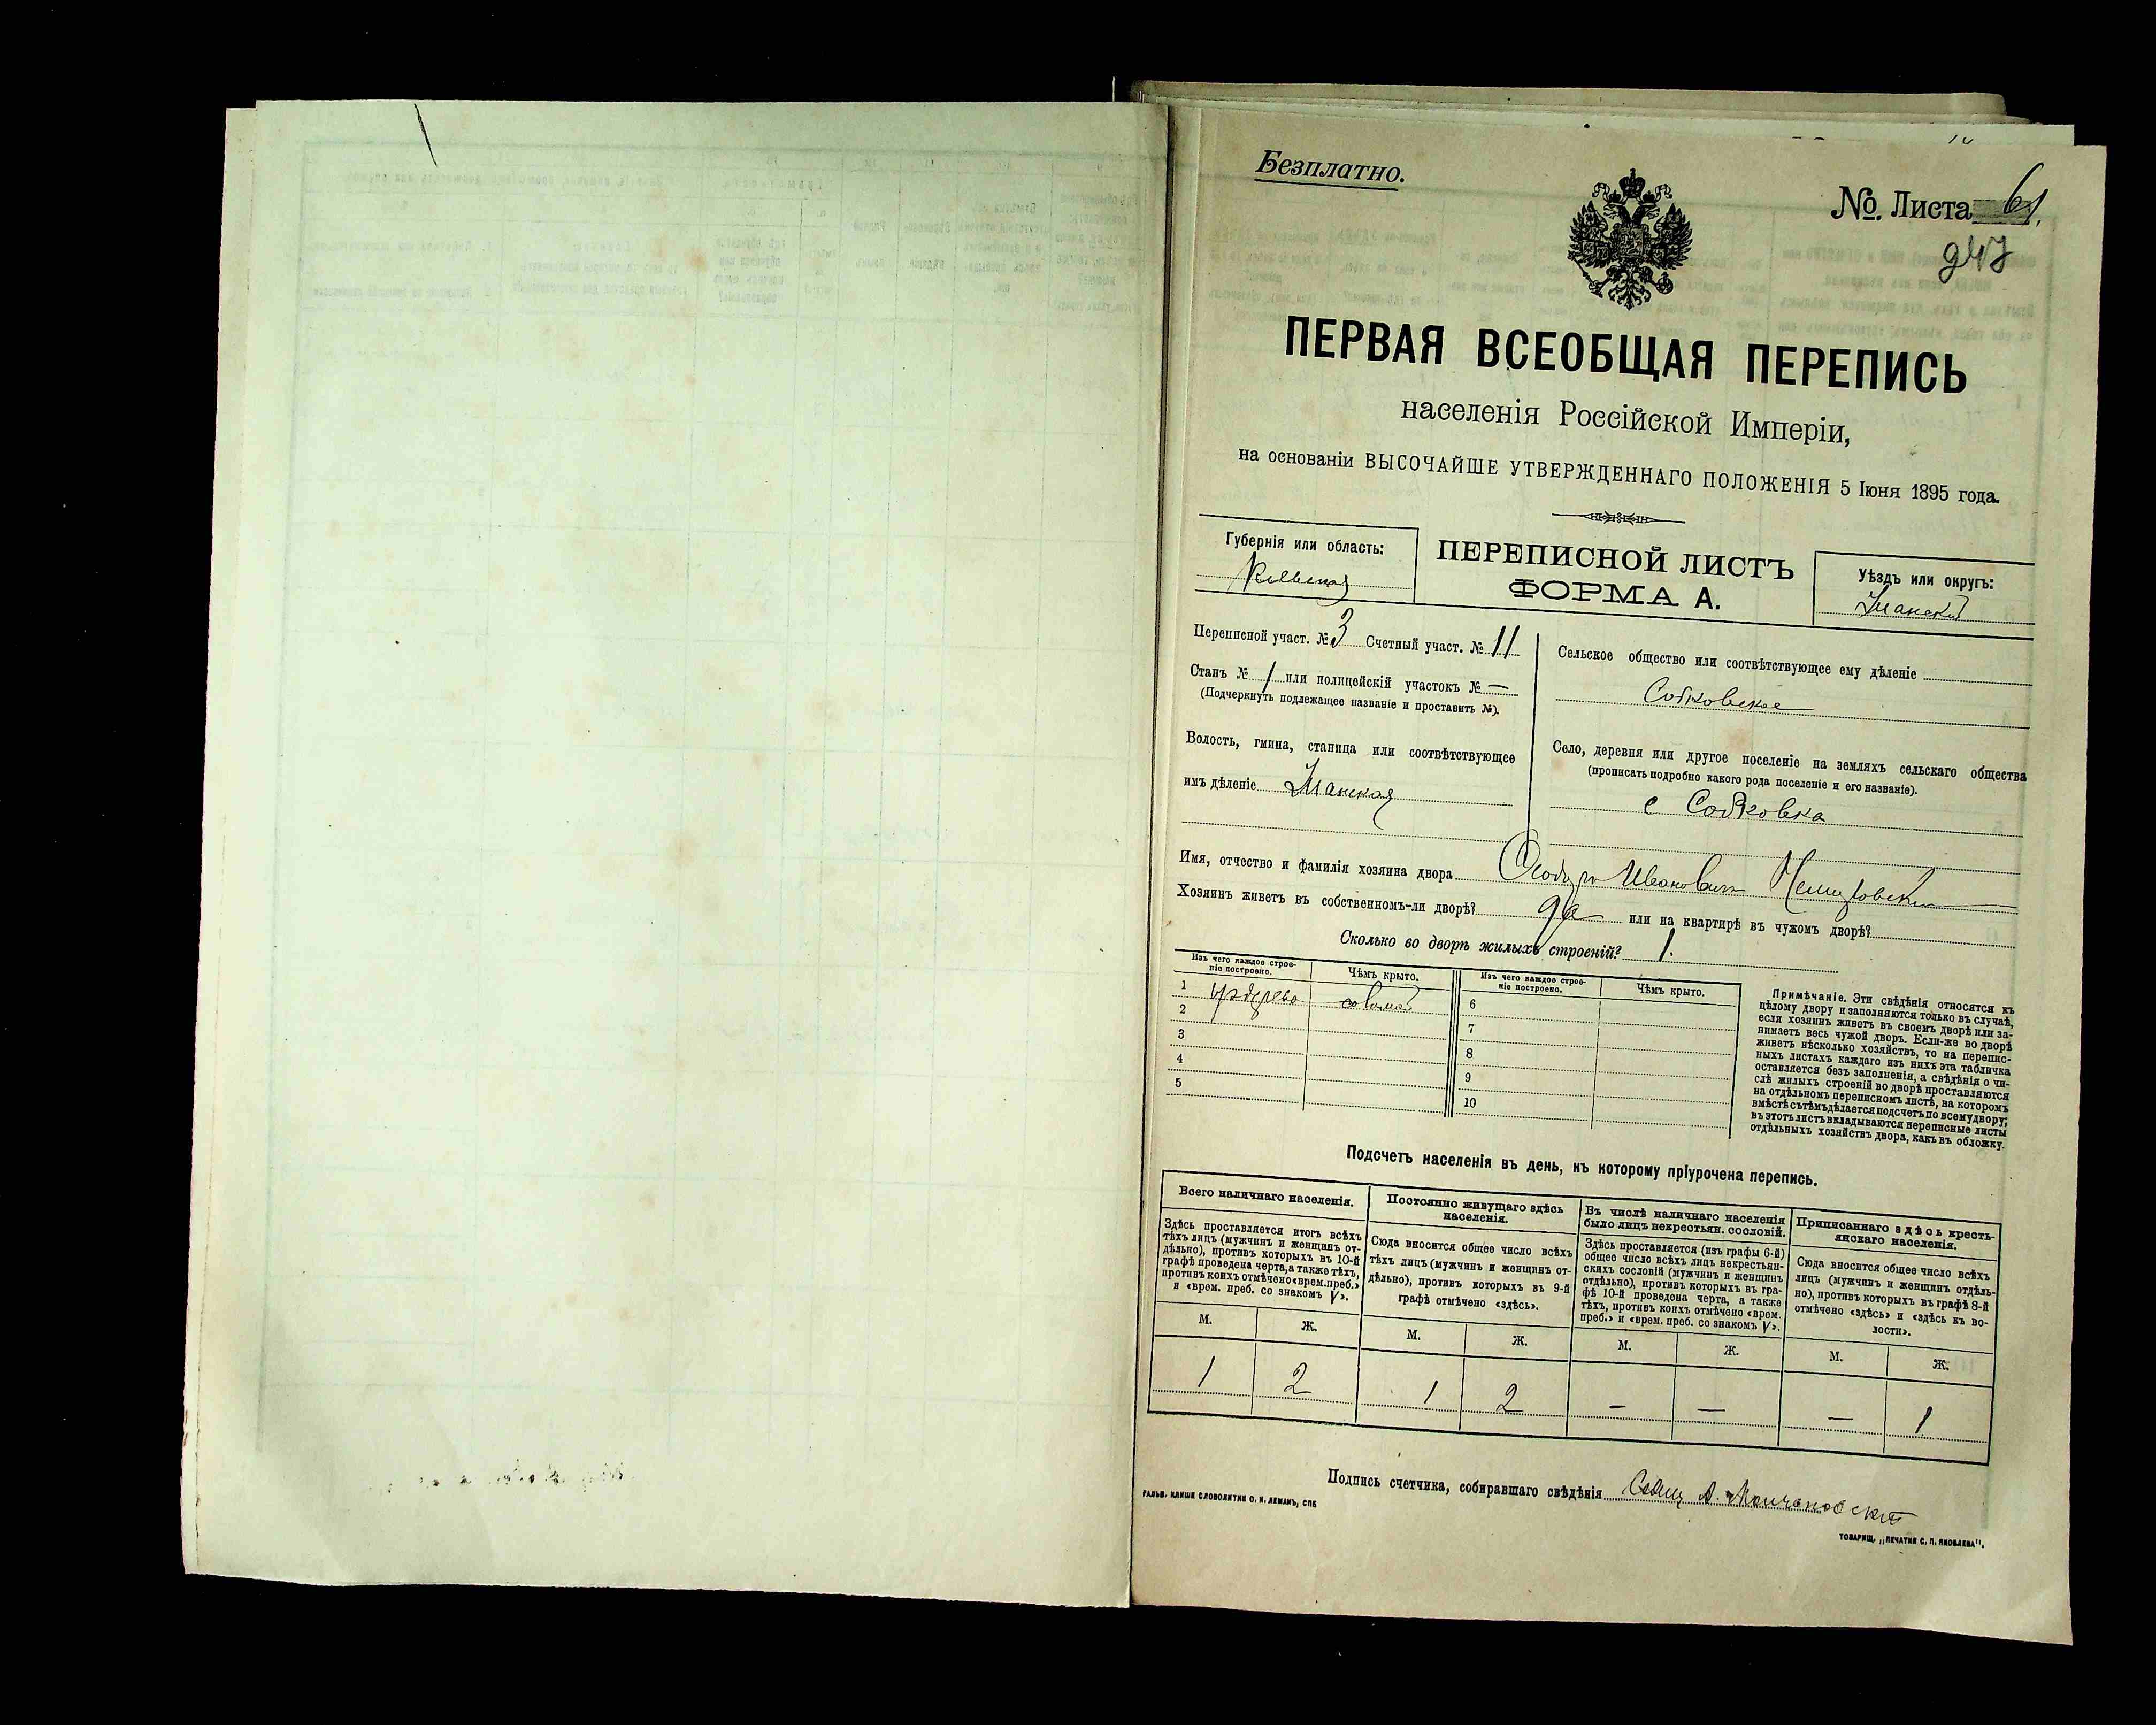 Безплатно.
№. Листа 61.
947
ПЕРВАЯ ВСЕОБЩАЯ ПЕРЕПИСЬ
населенія Россійской Имперіи,
на основаніи ВЫСОЧАЙШЕ УТВЕРЖДЕННАГО ПОЛОЖЕНІЯ 5 Іюня 1895 года.
Губернія или область:
Кіевская
ПЕРЕПИСНОЙ ЛИСТЪ
ФОРМА А.
Уѣздъ или округъ:
Уманскій
Переписной участ. № 3 Счетный участ. № 11
Станъ № 1 или полицейскій участокъ № —
(Подчеркнуть подлежащее названіе и проставить №).
Волость, гмина, станица или соотвѣтствующее
имъ дѣленіе Уманская
Сельское общество или соотвѣтствующее ему дѣленіе
Собковское
Село, деревня или другое поселеніе на земляхъ сельскаго общества
(прописать подробно какого рода поселеніе и его названіе).
с Собковка
Имя, отчество и фамилія хозяина двора Ивановичъ
Хозяинъ живетъ въ собственномъ-ли дворѣ? да или на квартирѣ въ чужомъ дворѣ?
Сколько во дворѣ жилыхъ строеній? 1.
Изъ чего каждое строе-
ніе построено.
Чѣмъ крыто.
1
2
3
4
5
соломой
Изъ чего каждое строе-
ніе построено.
Чѣмъ крыто.
6
7
8
9
10
Примѣчаніе. Эти свѣдѣнія относятся къ
цѣлому двору и заполняются только въ случаѣ,
если хозяинъ живетъ въ своемъ дворѣ или за-
нимаетъ весь чужой дворъ. Если-же во дворѣ
живетъ нѣсколько хозяйствъ, то на перепис-
ныхъ листахъ каждаго изъ нихъ эта табличка
оставляется безъ заполненія, а свѣдѣнія о чи-
слѣ жилыхъ строеній во дворѣ проставляются
на отдѣльномъ переписномъ листѣ, на которомъ
вмѣстѣ съ тѣмъ дѣлается подсчетъ по всему двору;
въ этотъ листъ вкладываются переписные листы
отдѣльныхъ хозяйствъ двора, какъ въ обложку.
Подсчетъ населенія въ день, къ которому пріурочена перепись.
Всего наличнаго населенія.
Здѣсь проставляется итогъ всѣхъ
тѣхъ лицъ (мужчинъ и женщинъ от-
дѣльно), противъ которыхъ въ 10-й
графѣ проведена черта, а также тѣхъ,
противъ коихъ отмѣчено «врем. преб.»
и «врем. преб. со знакомъ V».
М. Ж.
1 2
Постоянно живущаго здѣсь
населенія.
Сюда вносится общее число всѣхъ
тѣхъ лицъ (мужчинъ и женщинъ от-
дѣльно), противъ которыхъ въ 9-й
графѣ отмѣчено «здѣсь».
М. Ж.
1 2
Въ числѣ наличнаго населенія
было лицъ некрестьян. сословій.
Здѣсь проставляется (изъ графы 6-й)
общее число всѣхъ лицъ некрестьян-
скихъ сословій (мужчинъ и женщинъ
отдѣльно), противъ которыхъ въ гра-
фѣ 10-й проведена черта, а также
тѣхъ, противъ коихъ отмѣчено «врем.
преб.» и «врем. преб. со знакомъ V».
М. Ж.
— —
Приписаннаго здѣсь кресть-
янскаго населенія.
Сюда вносится общее число всѣхъ
лицъ (мужчинъ и женщинъ отдѣль-
но), противъ которыхъ въ графѣ 8-й
отмѣчено «здѣсь» и «здѣсь къ во-
лости».
М. Ж.
— 1
Подпись счетчика, собиравшаго свѣдѣнія
ГАЛЬВ. КЛИШЕ СЛОВОЛИТНИ О. И. ЛЕМАНЪ, СПБ
ТОВАРИЩ. „ПЕЧАТНЯ С. П. ЯКОВЛЕВА“.